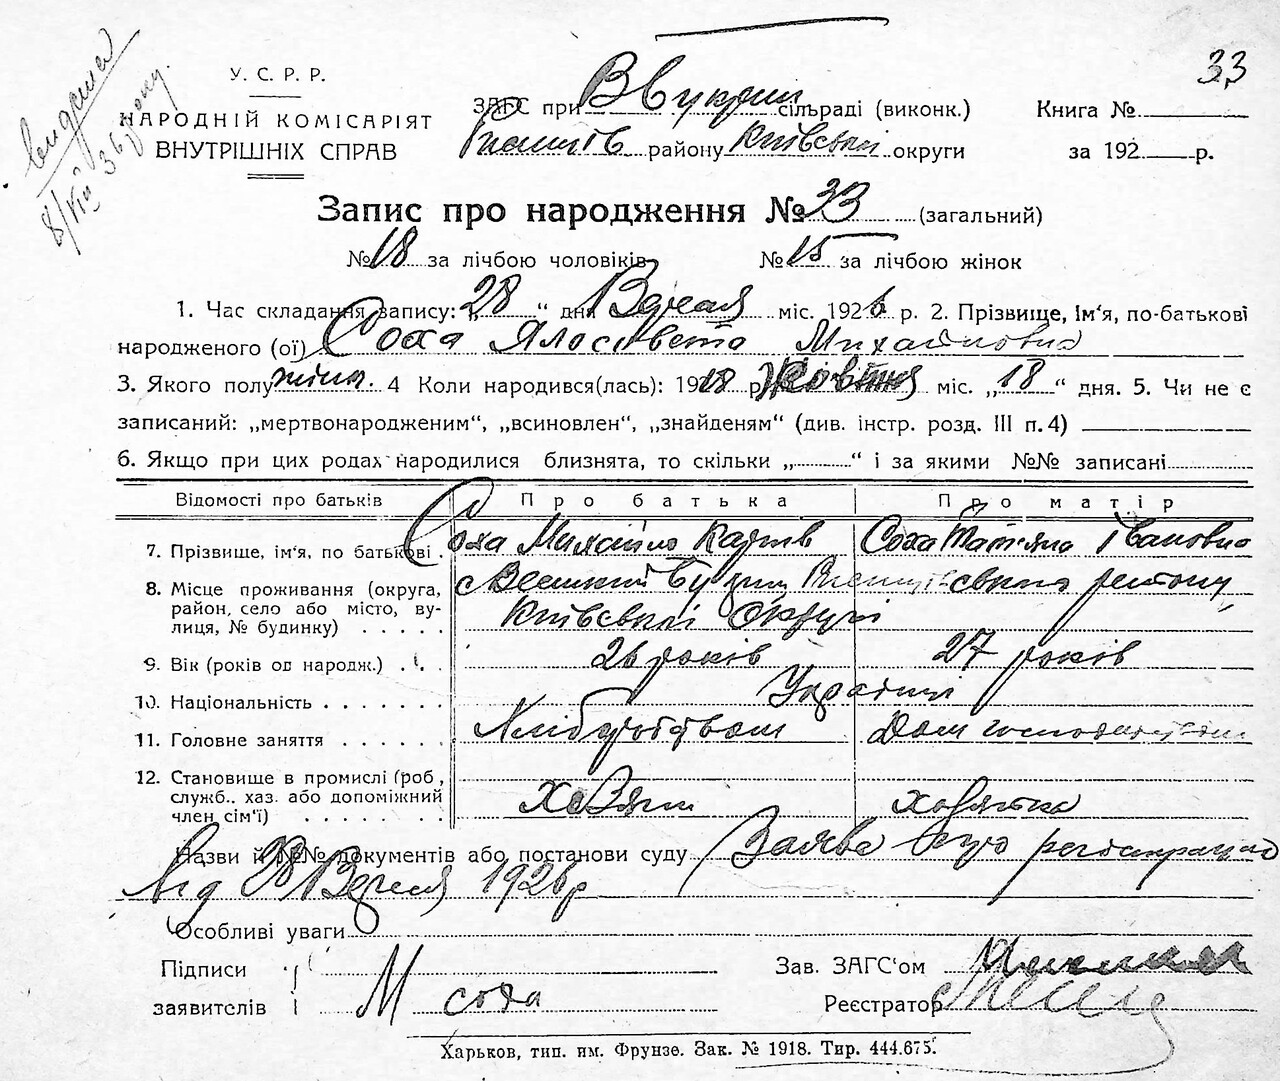 33
видана
У. С. Р. Р.
НАРОДНІЙ КОМІСАРІЯТ
ВНУТРІШНІХ СПРАВ
ЗАГС при сільраді (виконк.)
району Київської округи
Книга №
за 192 р.
Запис про народження № 33 (загальний)
№ 18 за лічбою чоловіків № 15 за лічбою жінок
1. Час складання запису: „28“ дня Вересня міс. 1926 р. 2. Прізвище, ім'я, по-батькові
народженого (ої) Соха Михайловна
3. Якого полу жіки. 4 Коли народився(лась): 1918 р. Жовтня міс. „18“ дня. 5. Чи не є
записаний: „мертвонародженим“, „всиновлен“, „знайденям“ (див. інстр. розд. III п. 4)
6. Якщо при цих родах народилися близнята, то скільки „ “ і за якими №№ записані
Відомості про батьків Про батька Про матір
7. Прізвище, ім'я, по батькові. Соха Михайло Соха Татʼяна Івановна
8. Місце проживання (округа, район, село або місто, вулиця, № будинку) району
Київської Округи
9. Вік (років од народж.) 26 років 27 років
10. Національність Українці
11. Головне заняття Хліборобством Дом господарством
12. Становище в промислі (роб,
служб.. хаз. або допоміжний
член сім'ї) хазяїн хазяйка
Назви й №№ документів або постанови суду Заява
від 28 Вересня 1926 р
Особливі уваги
Підписи
заявителів М Соха
Зав. ЗАГС'ом
Реєстратор
Харьков, тип. им. Фрунзе. Зак. № 1918. Тир. 444.675.